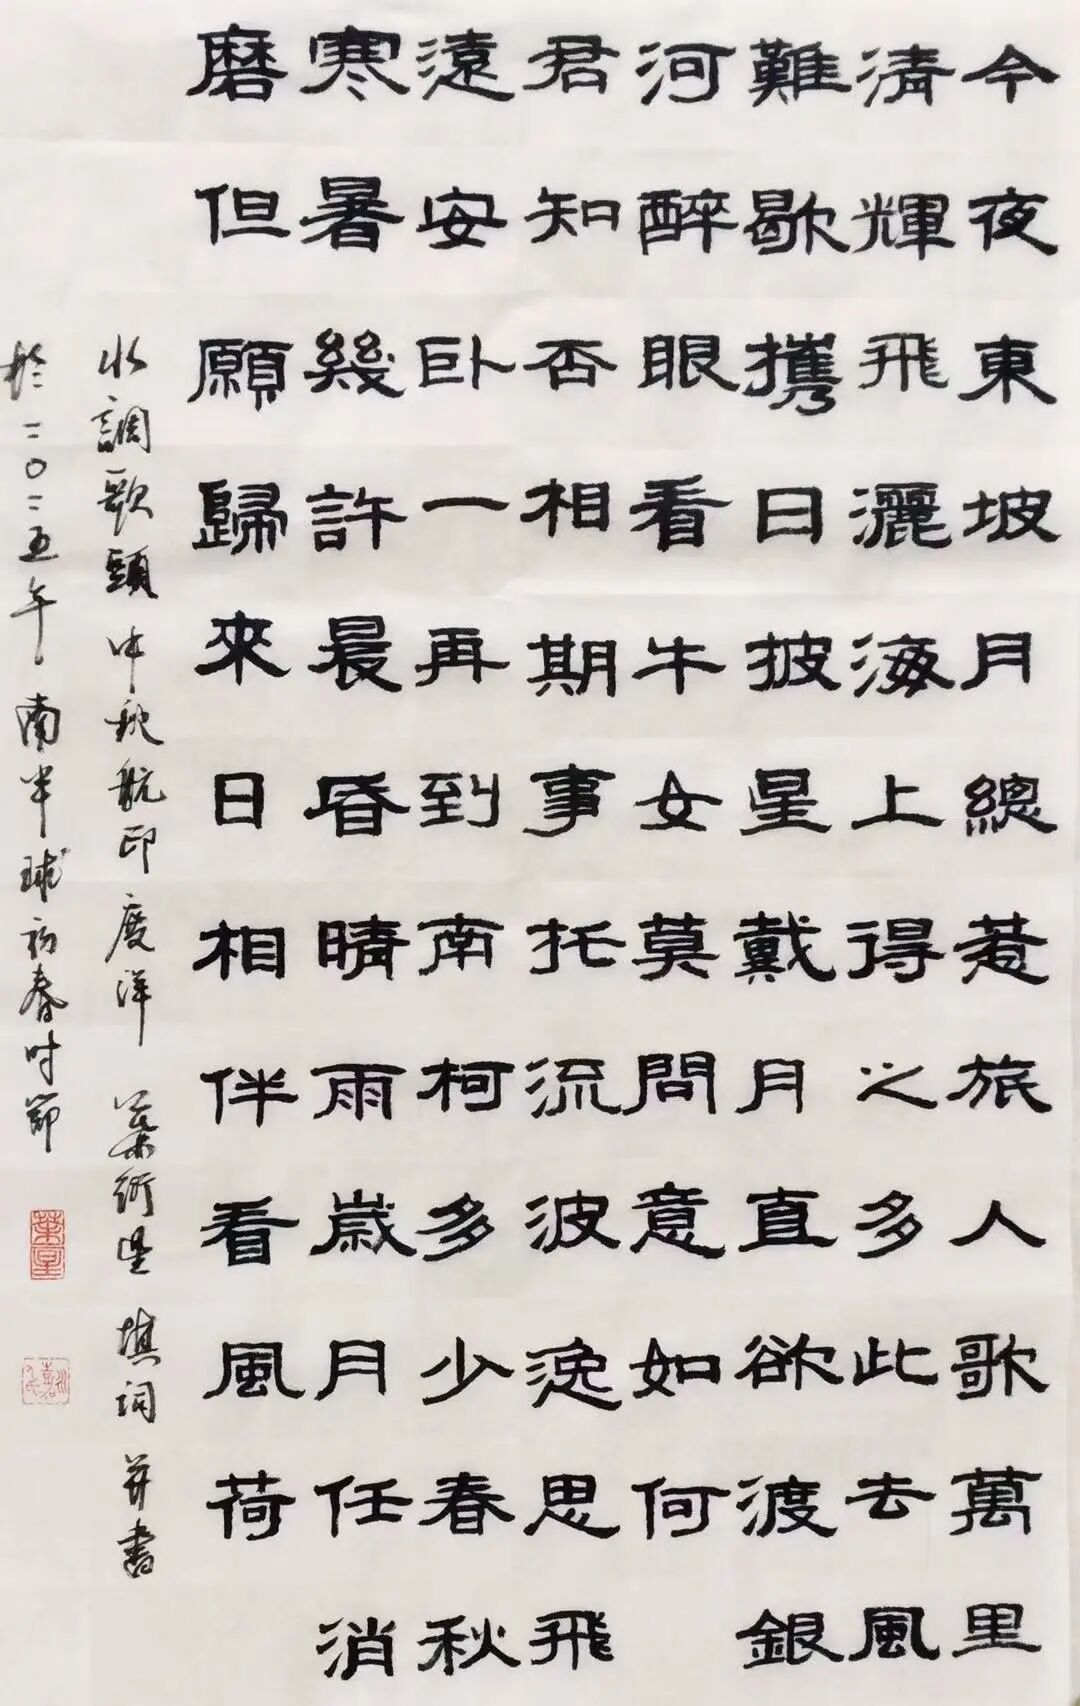 今夜東坡月總惹旅人歌萬里
清輝飛灑海上得之多此去風
難歇攜日披星戴月直欲渡銀
河醉眼看牛女莫問意如何
君知否相期事托流波逸思飛
遠安卧一再到南柯多少春秋
寒暑幾許晨昏晴雨歲月任消
磨但願歸來日相伴看風荷
水調歌頭 中秋航印度洋 葉衍 填詞 并書
於二〇二五年南半球初春时節